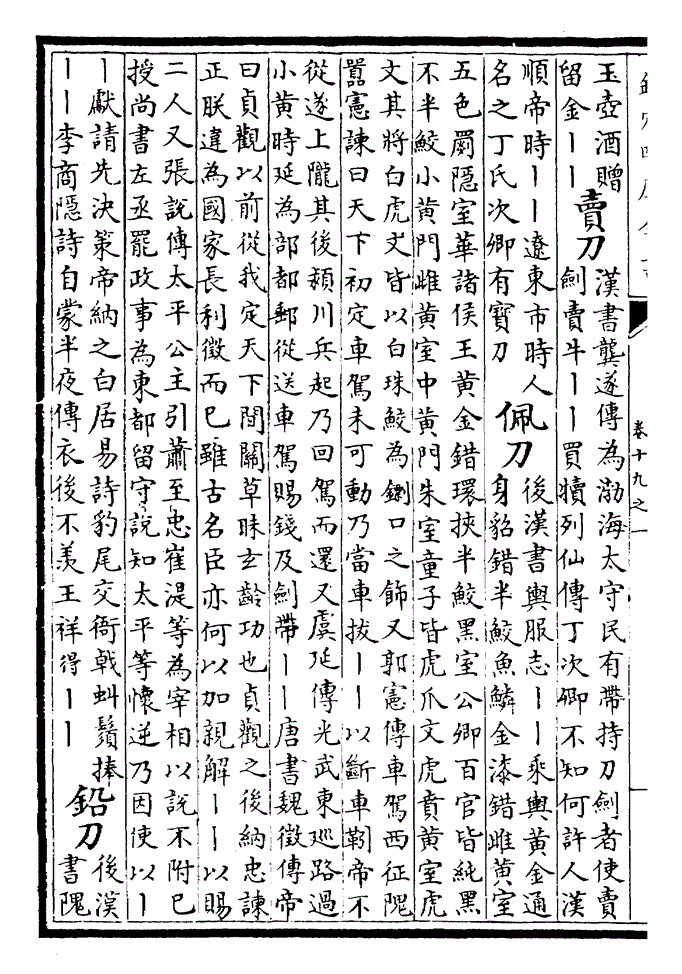 欽定四庫全書
卷十九之一
玉壺酒贈
留金丨丨
賣刀
漢書龔遂傳為渤海太守民有帶持刀劍者使賣
劍賣牛丨丨買犢列仙傳丁次卿不知何許人漢
順帝時丨丨遼東市時人
名之丁氏次卿有寳刀
佩刀
後漢書輿服志丨丨乘輿黃金通
身貂錯半鮫魚鱗金漆錯雌黃室
五色罽隱室華諸侯王黃金錯環挾半鮫黑室公卿百官皆純黑
不半鮫小黃門雌黃室中黃門朱室童子皆虎爪文虎賁黃室虎
文其將白虎文皆以白珠鮫為口之飾又郭憲傳車駕西征隗
囂憲諫曰天下初定車駕未可動乃當車拔丨丨以斷車靷帝不
從遂上隴其後潁川兵起乃回駕而還又虞延傳光武東巡路過
小黃時延為部都郵從送車駕賜錢及劍帶丨丨唐書魏徵傳帝
曰貞觀以前從我定天下間關草昧玄齡功也貞觀之後納忠諫
正朕違為國家長利徵而已雖古名臣亦何以加親解丨丨以賜
二人又張說傳太平公主引蕭至忠崔湜等為宰相以說不附已
授尚書左丞罷政事為東都留守說知太平等懷逆乃因使以丨
丨獻請先決策帝納之白居易詩豹尾交衙戟虬鬚捧
丨丨李商隱詩自蒙半夜傳衣後不羨王祥得丨丨
鉛刀
後漢
書隗